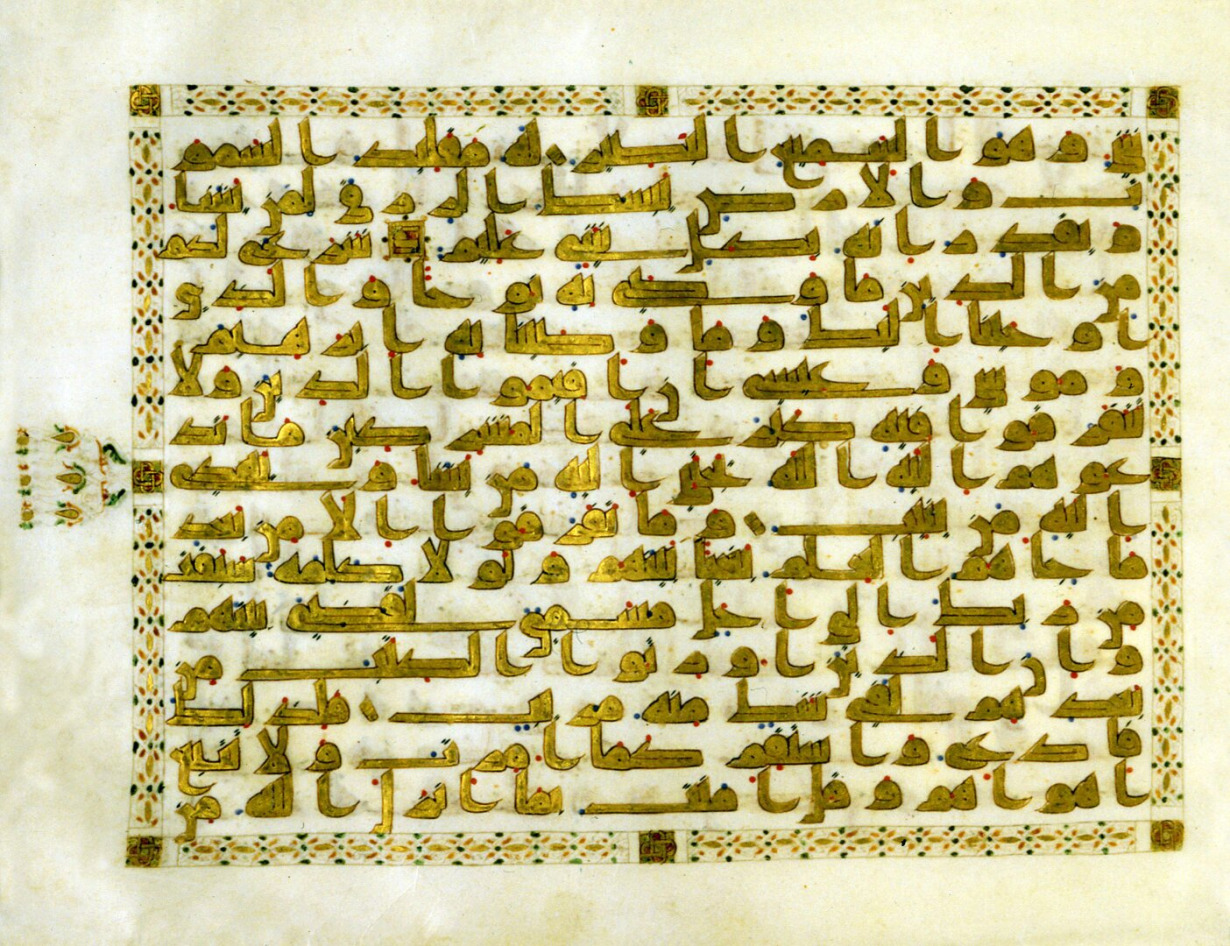 شى وهو السميع البصير له مقليد السمو
ت والارض يبسط الرزق لمن يشا
ويقدر انه بكل شى عليم شرع لكم
من الدين ما وصى به نوحا والذى
اوحينا اليك وما وصينا به ابرهيم
وموسى وعيسى ان اقيموا الدين ولا
تتفرقوا فيه كبر على المشركين ما تد
عوهم اليه الله يجتبى اليه من يشا ويهدى
اليه من ينيب وما تفرقوا الا من بعد
ما جاهم العلم بغيا بينهم ولولا كلمه سبقت
من ربك الى اجل مسمى لقضى بينهم
وان الذين اورثوا الكتب من
بعدهم لفى شك منه مريب فلذلك
فادع واستقم كما امرت ولا تتبع
اهواهم وقل امنت بما انزل الله من